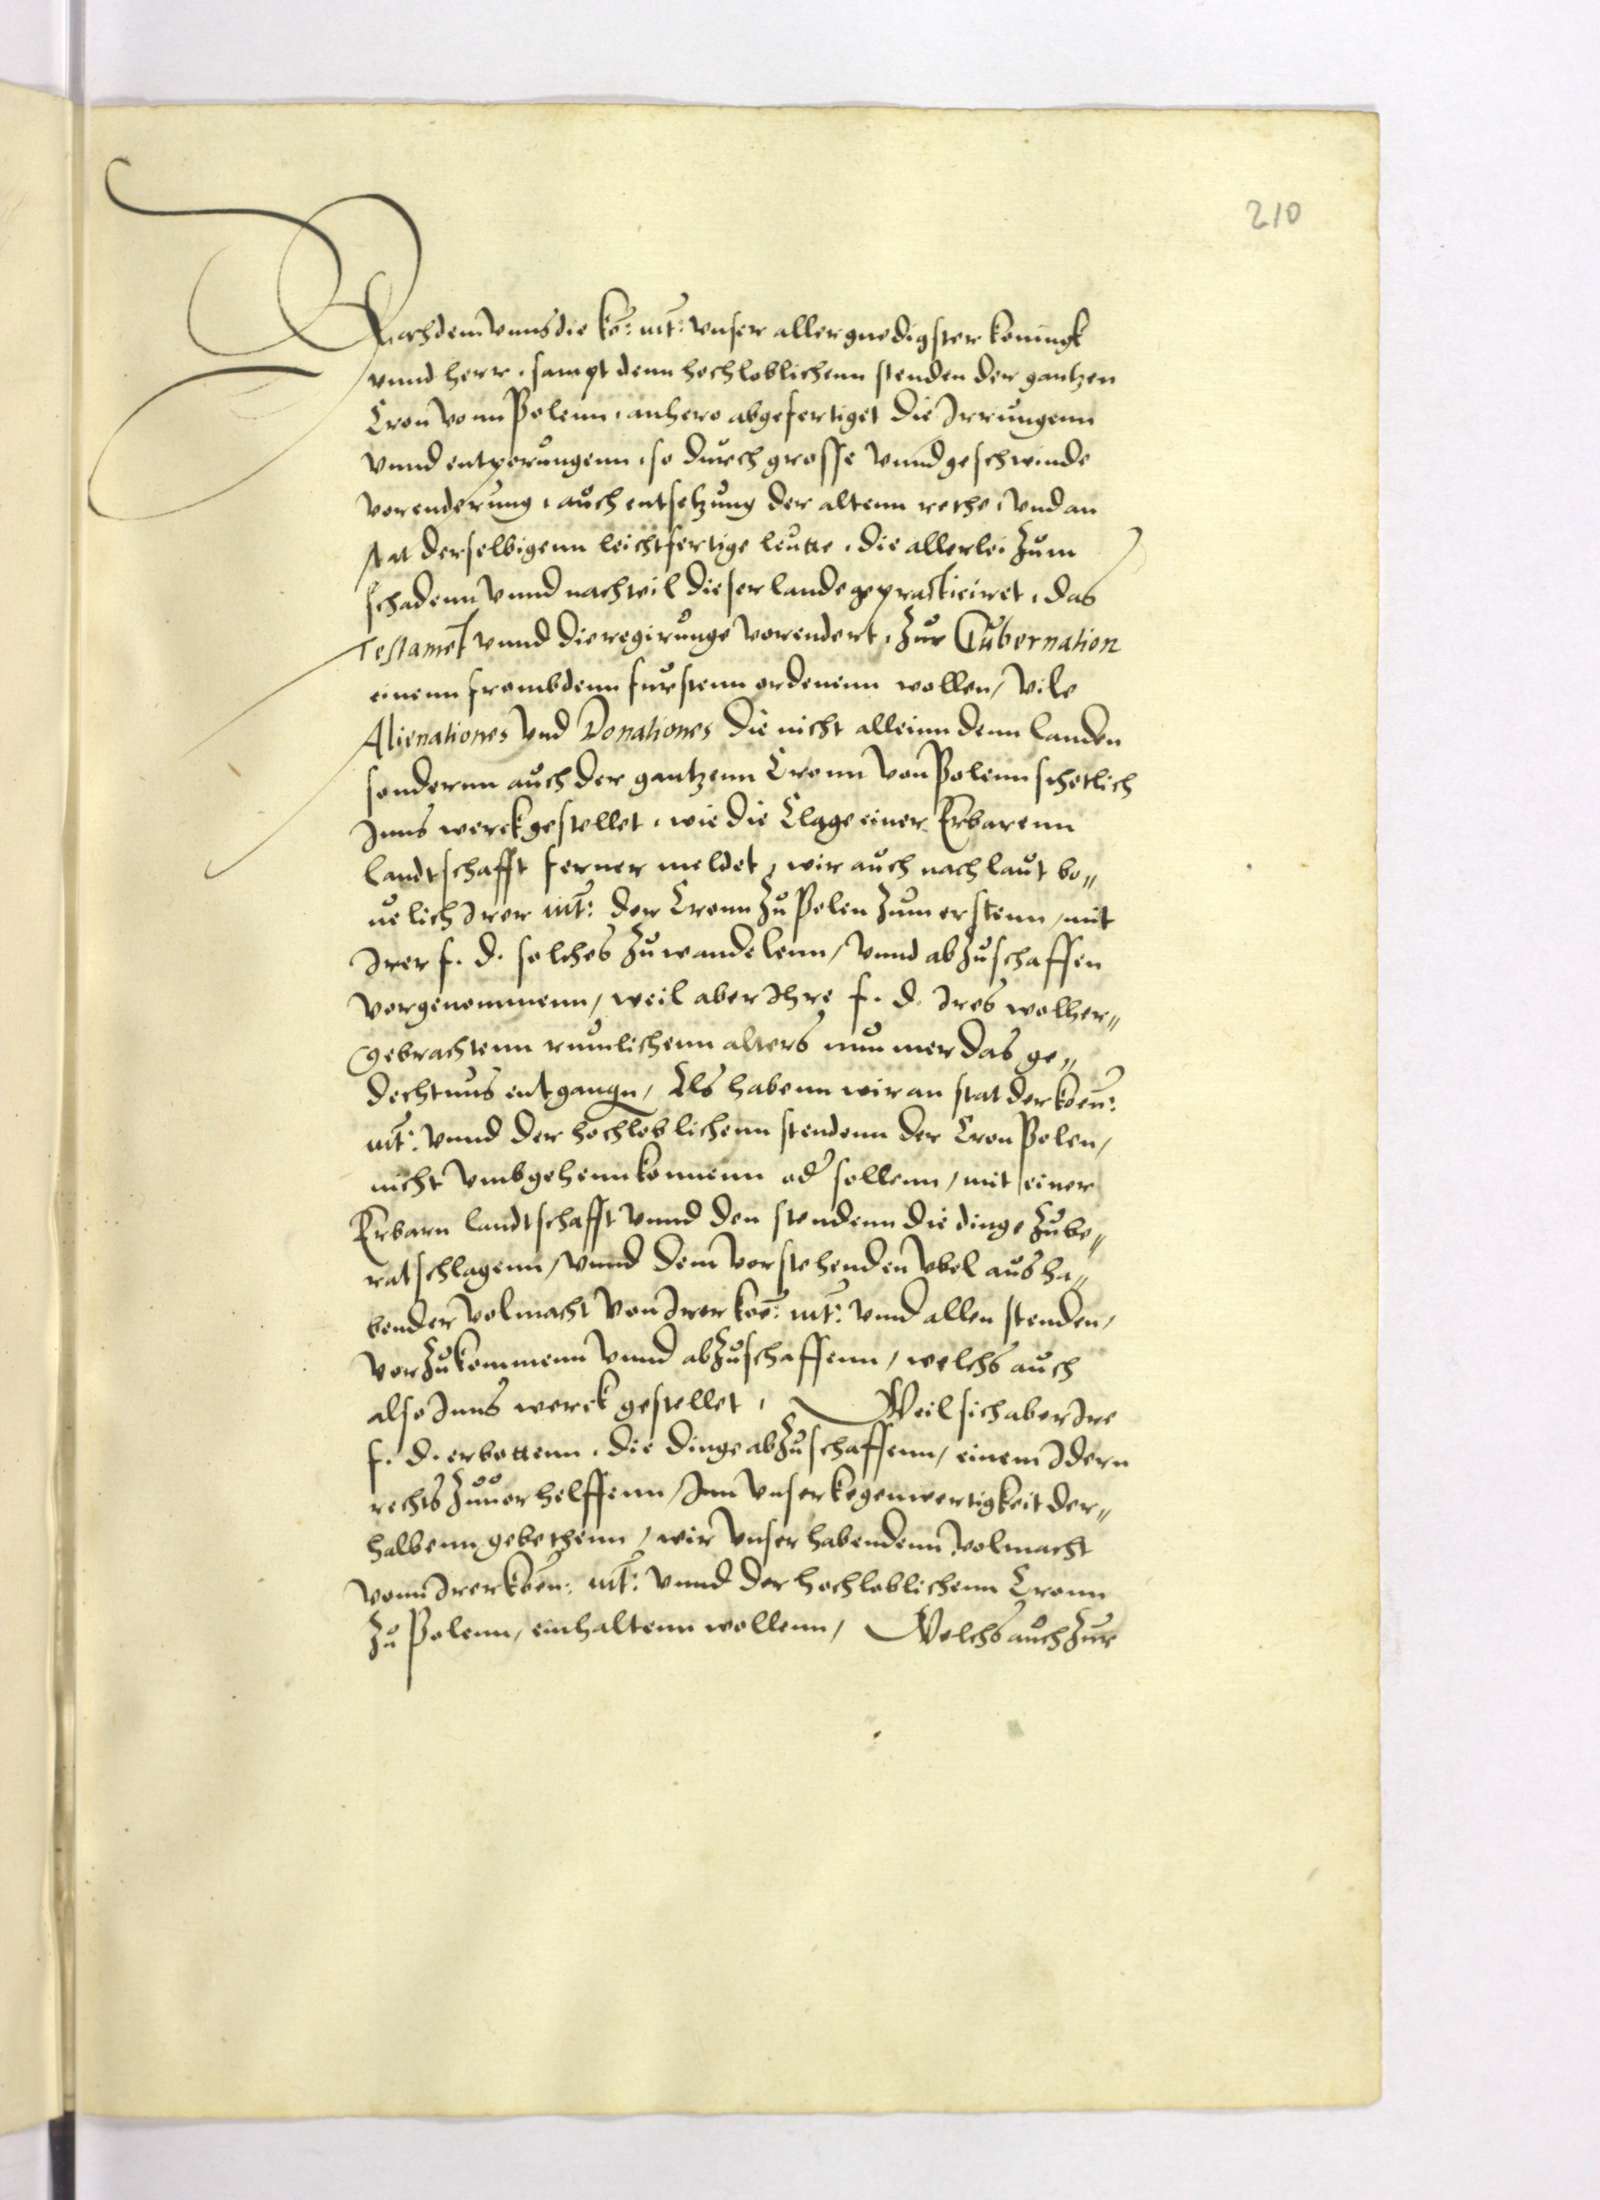 210
Nachdem vnns die ko: mt: vnser allergnedigster koningk
vnnd herr, sampt denn hochloblichenn stenden der gantzen
Cron vonn Polenn, anhero abgefertiget die Irrungenn
vnnd entperungenn, so durch grosse vnnd geschwinde
vorenderung, auch entsetzung der altenn rethe, vnd an
stat derselbigenn leichtfertige leutte, die allerlei zum
schadenn vnnd nachteil dieser lande gepracticiret, das
Testament vnnd die regirunge vorendert, zur Gubernation
einenn frembdenn furstenn ordenenn wollen, vile
Alienationes vnd Donationes die nicht alleinn denn landen
sondernn auch der gantzenn Cronn von Polenn schetlich
Inns werck gestellet, wie die Clage einer Erbarenn
landtschafft ferner meldet, wir auch nach laut be„
uelich Irer mt: der Cronn zu Polen zum erstenn, mit
Irer f. d. solches zu wandelenn, vnnd abzuschaffen
vorgenommenn, weil aber Ihre f. d. Ires wolher„
gebrachtenn rumlichenn alters nun mer das ge„
dechtnus entgangn, Als habenn wir an stat der koen:
mt: vnnd der hochloblichenn stendenn der Cron Polen,
nicht vmbgehenn konnenn oder sollenn, mit einer
Erbarn landtschafft vnnd den stendenn die dinge zu be„
ratschlagenn, vnnd dem vorstehenden vbel aus ha„
bender volmacht von Irer koe: mt: vnnd allen stenden,
vorzukommenn vnnd abzuschaffenn, welchs auch
also Inns werck gestellet, Weil sich aber Ire
f. d. erbottenn, die dinge abzuschaffenn, einem Idern
rechts zuuerhelffenn, Inn vnser kegenwertigkeit der„
halbenn gebethenn, wir vnser habendenn volmacht
vonn Irer koen: mt: vnnd der hochloblichenn Cronn
zu Polenn, einhaltenn wollenn, Welchs auch zur